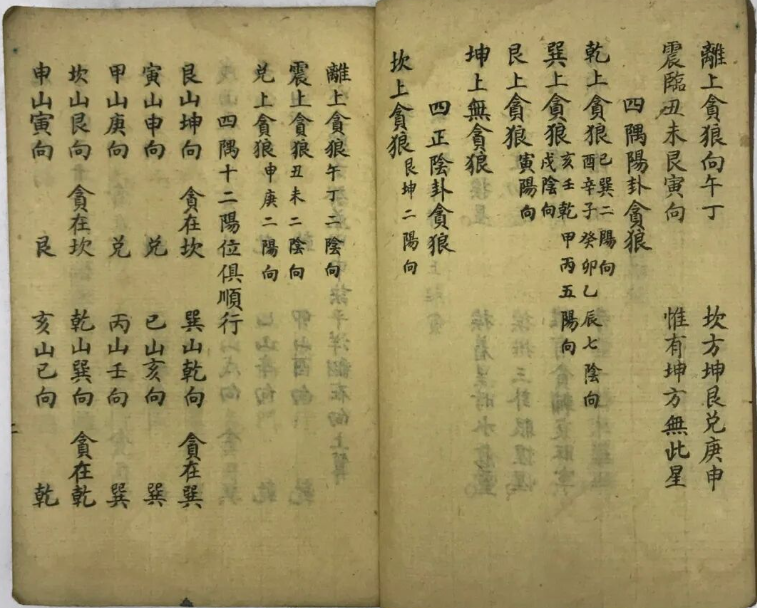 離上貪狼向午丁　坎方坤艮兌庚申
震臨丑未艮寅向　惟有坤方無此星
四隅陽卦貪狼
乾上貪狼巳巽二陽向酉辛子癸卯乙辰七陰向
巽上貪狼亥壬乾甲丙五陽向戌陰向
艮上貪狼寅陽向
坤上無貪狼
四正陰卦貪狼
坎上貪狼艮坤二陽向
離上貪狼午丁二陰向
震上貪狼丑未二陰向
兌上貪狼申庚二陽向
四隅十二陽位俱順行
艮山坤向　貪在坎　巽山乾向　貪在巽
寅山申向　兌　巳山亥向　巽
甲山庚向　兌　丙山壬向　巽
坎山艮向　貪在坎　乾山巽向　貪在乾
申山寅向　艮　亥山巳向　乾